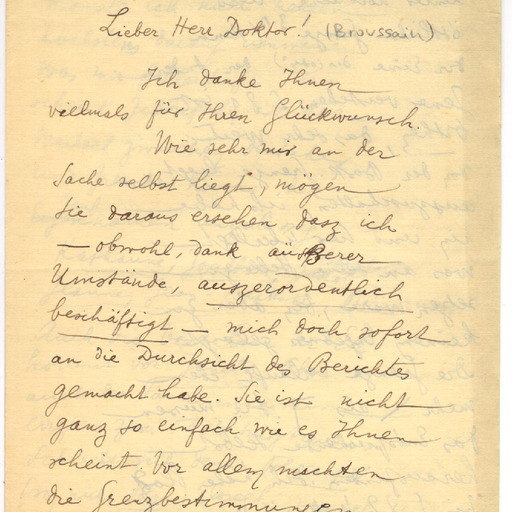 Lieber Herr Doktor! (Broussain)
Ich danke Ihnen
vielmals für Ihren Glückwunsch.
Wie sehr mir an der
Sache selbst liegt, mögen
Sie daraus ersehen dasz ich
— obwohl, dank äusserer
Umstände, auszerordentlich
beschäftigt — mich doch sofort
an die Durchsicht des Berichtes
gemacht habe. Sie ist nicht
ganz so einfach wie es Ihnen
scheint. Vor allem machten
die Grenzbestimmungen